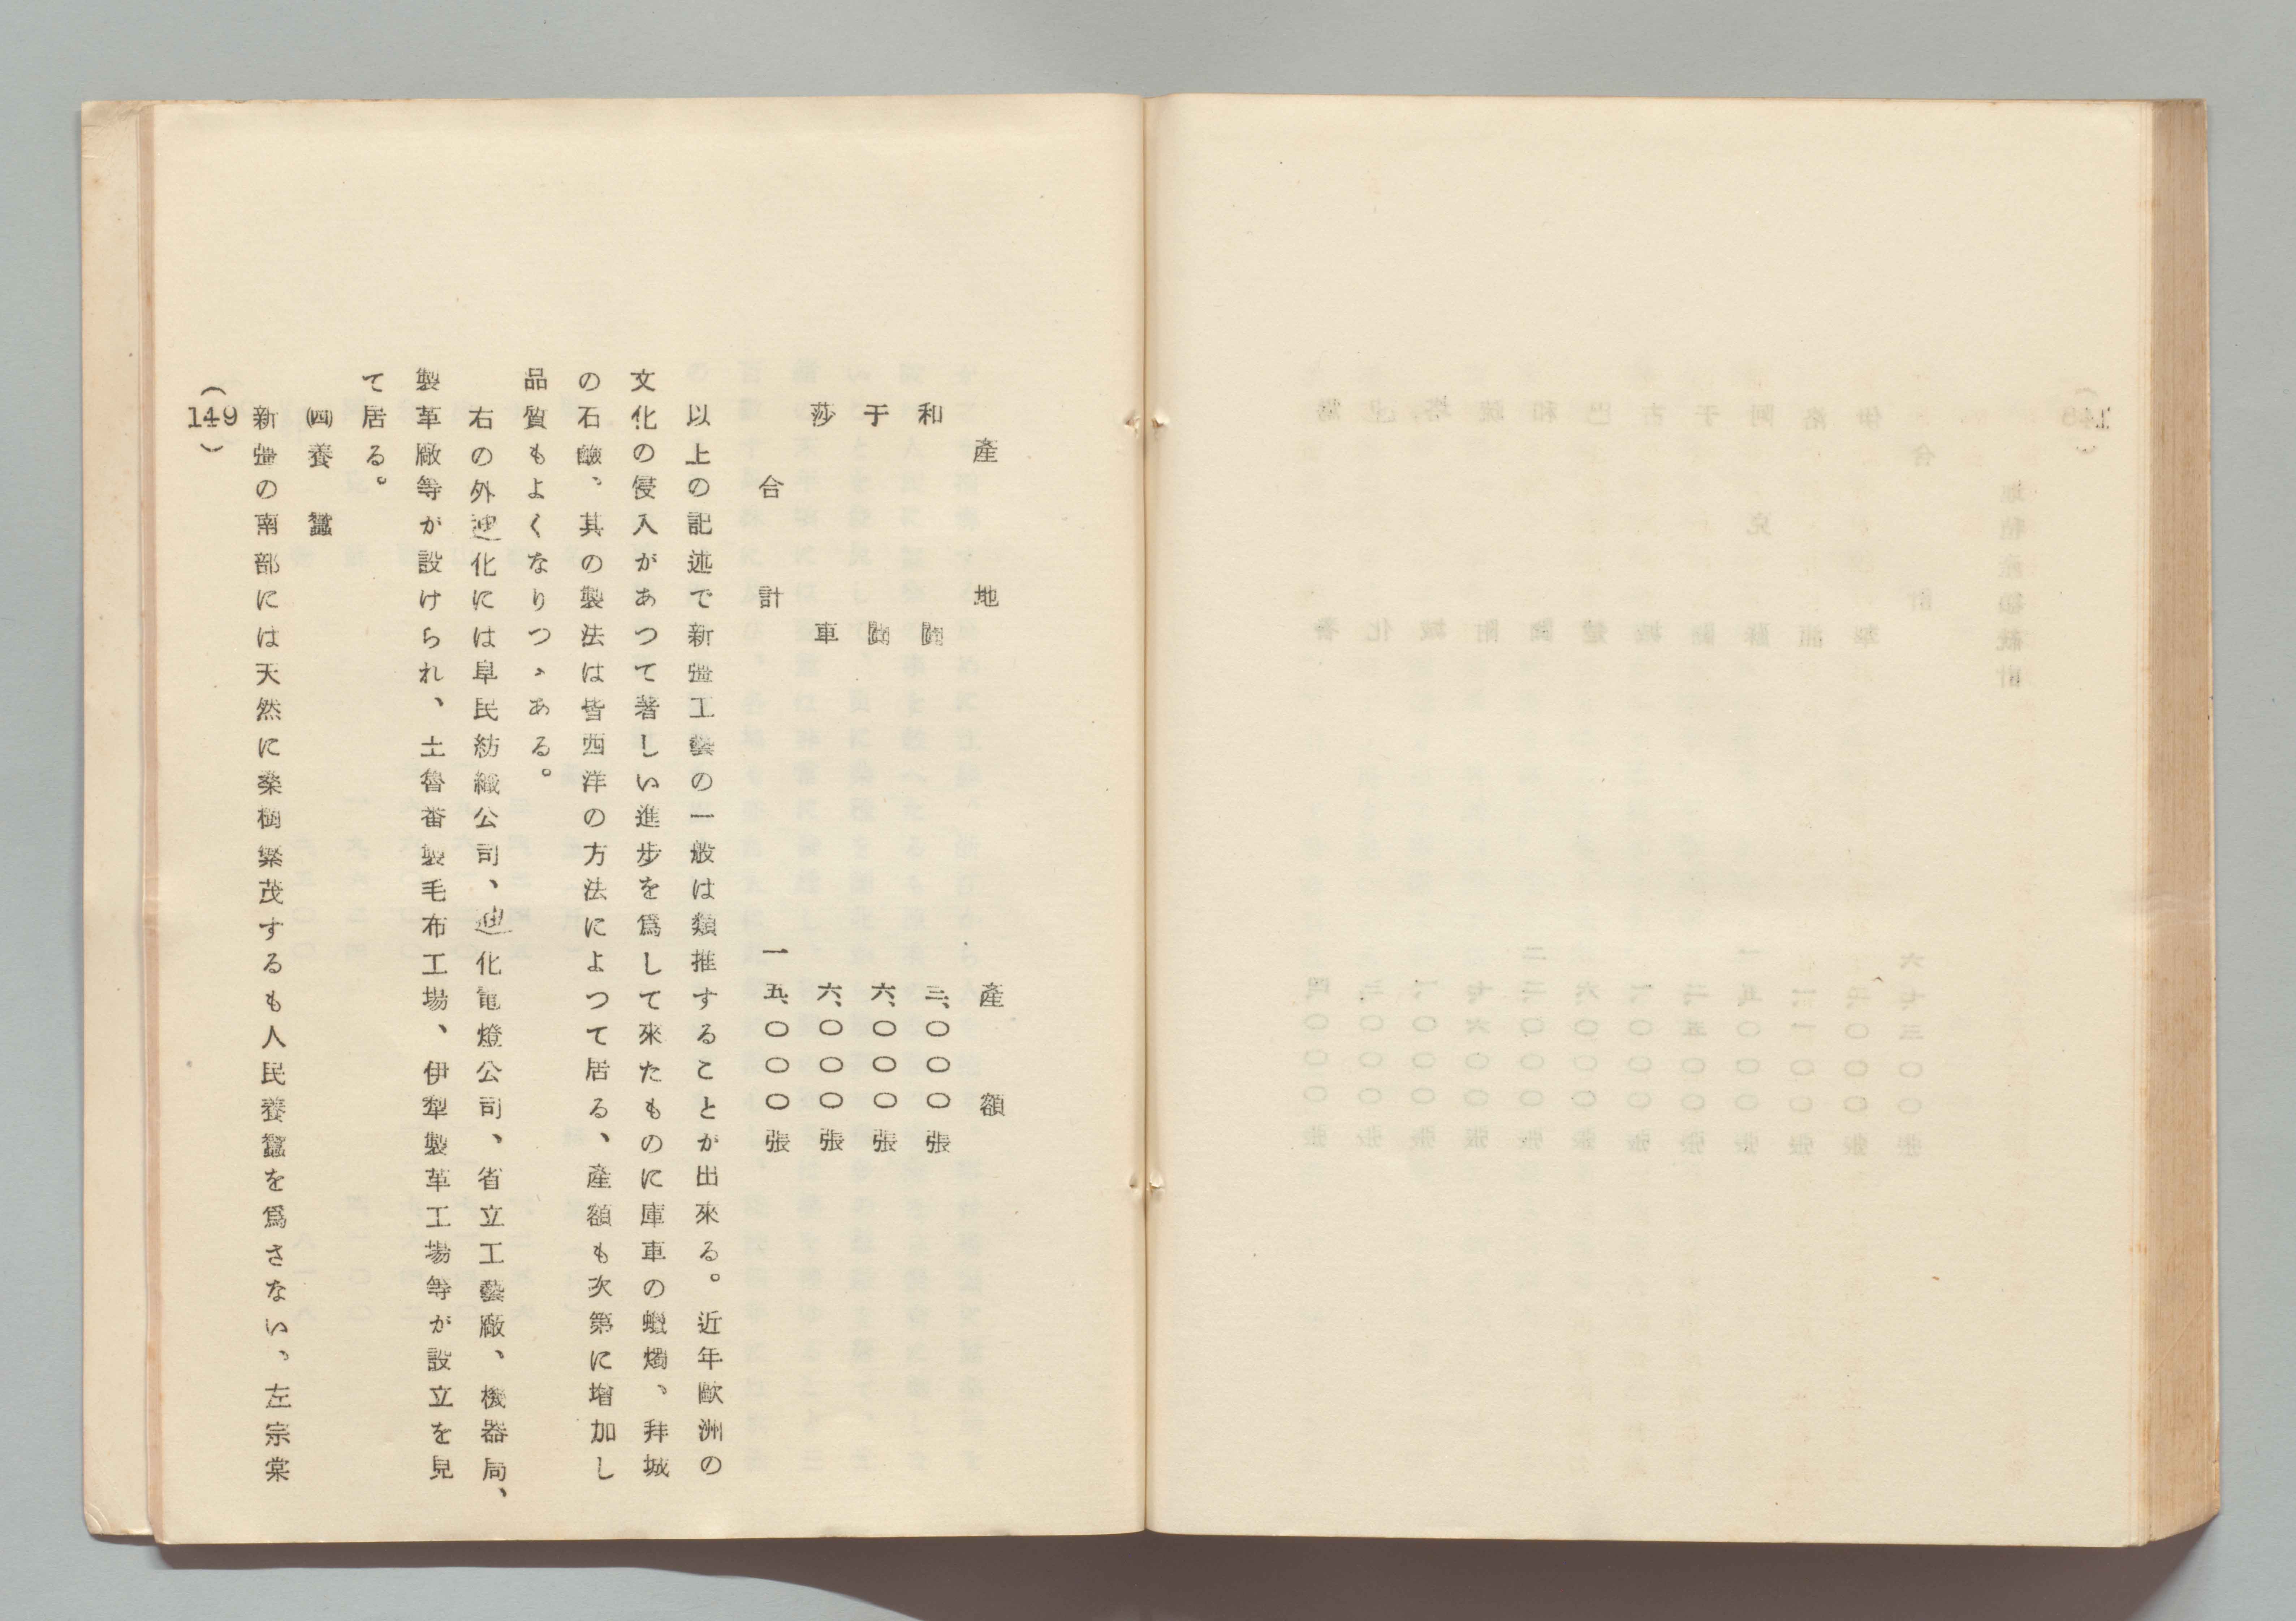 產地　產額
和闐　三、〇〇〇張
于闐　六、〇〇〇張
莎車　六、〇〇〇張
合計　一五、〇〇〇張
以上の記述で新疆工藝の一般は類推することが出來る。近年歐洲の
文化の侵入があつて著しい進步を爲して來たものに庫車の蠟燭、拜城
の石鹼、其の製法は皆西洋の方法によつて居る、產額も次第に增加し
品質もよくなりつゝある。
右の外迪化には阜民紡織公司、迪化電燈公司、省立工藝廠、機器局、
製革廠等が設けられ、土魯蕃製毛布工場、伊犁製革工場等が設立を見
て居る。
㈣養蠶
新疆の南部には天然に桑樹繁茂するも人民養蠶を爲さない、左宗棠
(149)